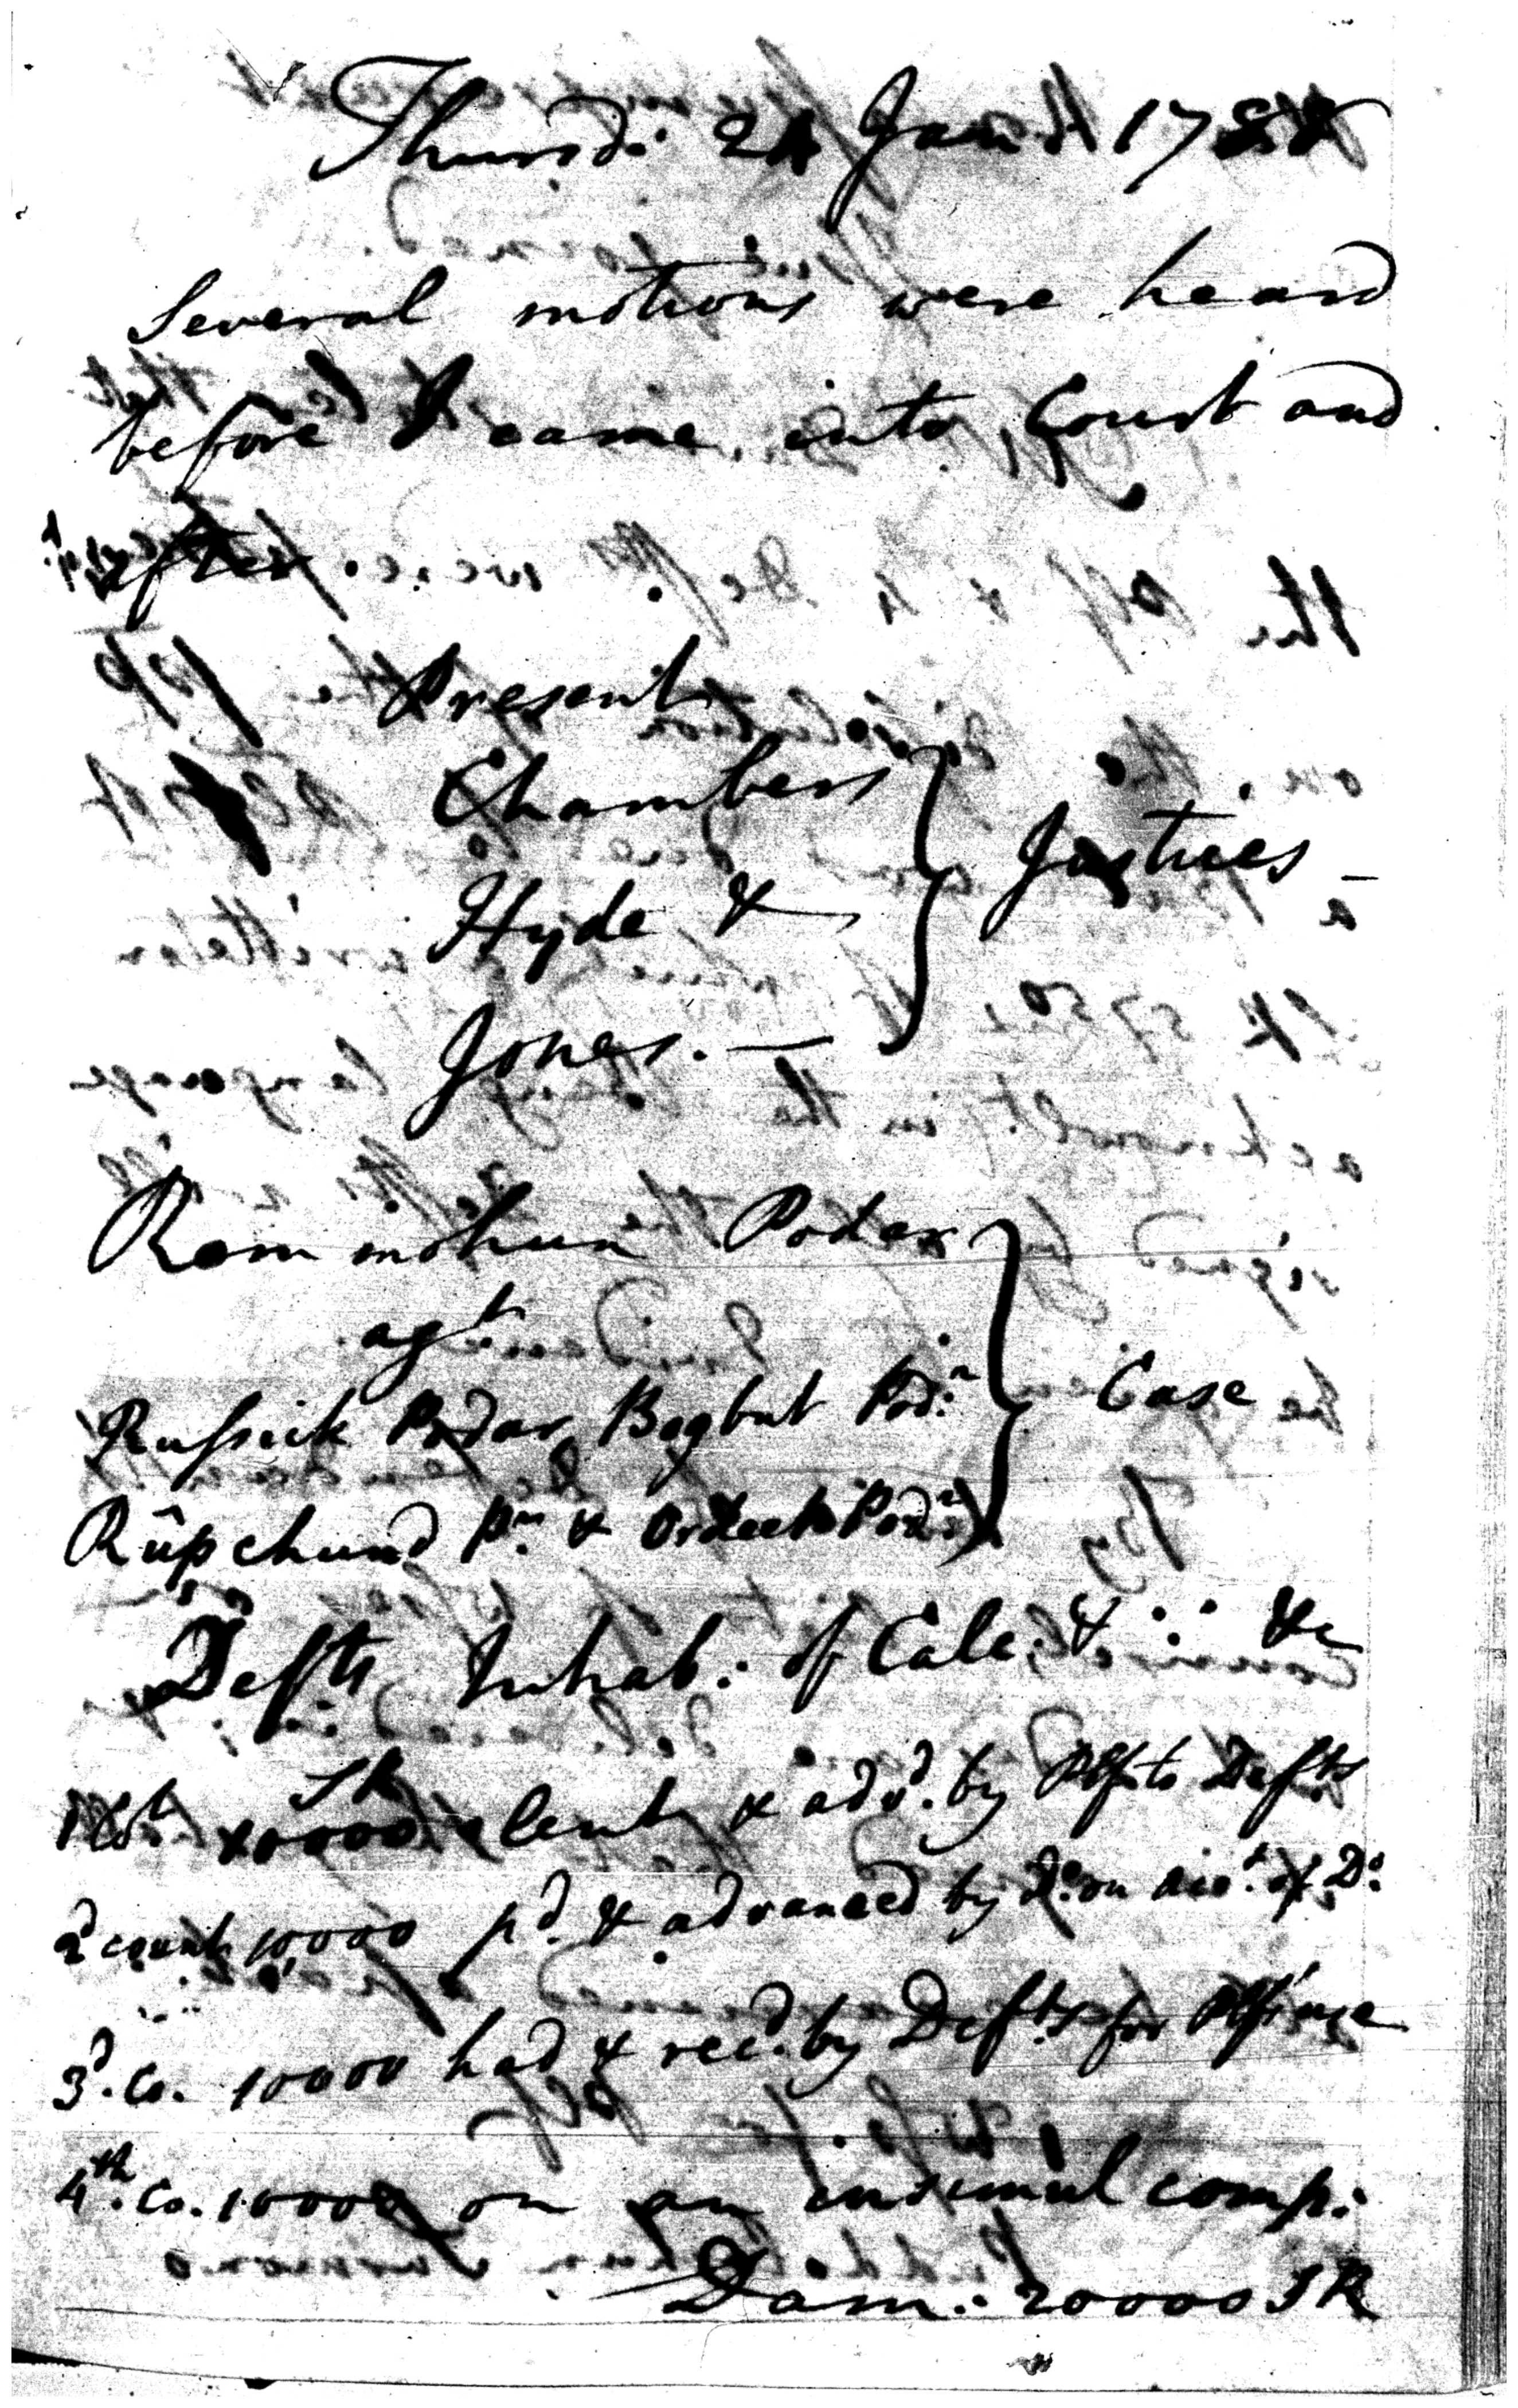 Thursd: 24 Jan: 178
Several motions were heard
before I came into Court and
after.
Present
Chambers
Hyde &
Jones. —
Justices —
Rammohun Podar
agt
Russick Podar, Bogbut Podr
Rûpchund Pr. & Podr
Case
Defts Inhab: of Calc. & ∴ &c
1 Cot. SR 10000 lent & advd. by Plf to Defts
2d count 10000 pd. & advanced by Do. on acct. of Do.
3d. Co. 10000 had & recd. by Defts for Plfs use
4th. Co. 10000 on an insimul comp:
Dam: 20000 SR